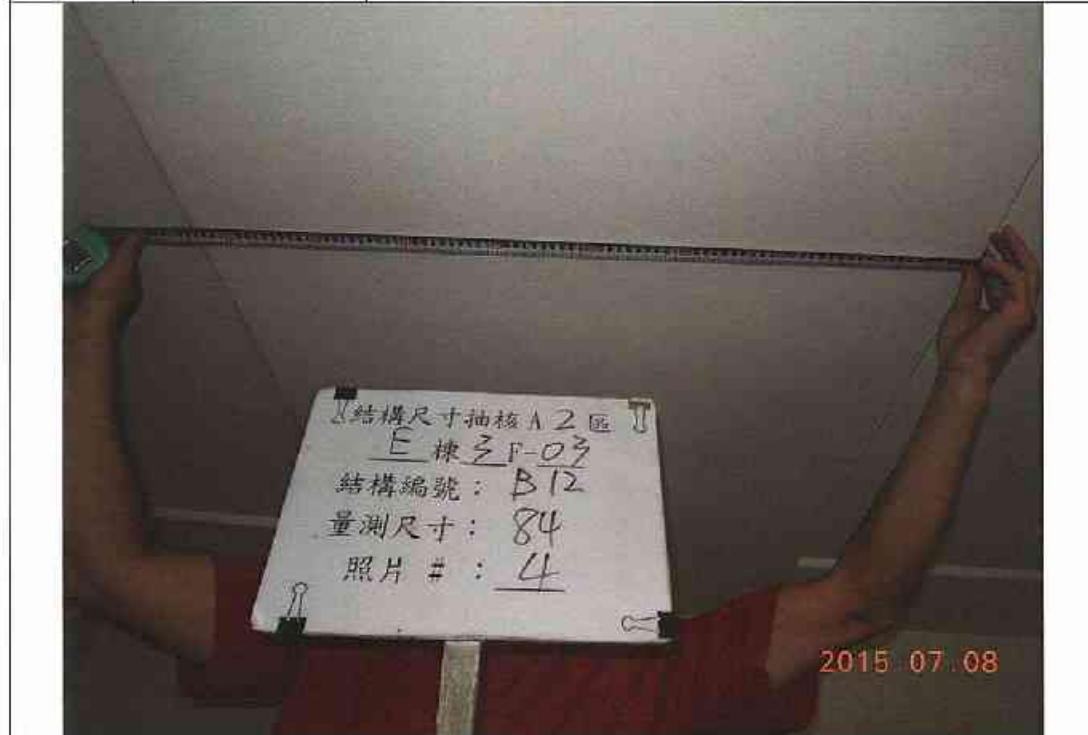 結構尺寸抽核 A 2 區
E 棟 3 F-03
結構編號： B12
量測尺寸： 84
照片 # ： 4
2015 07 08